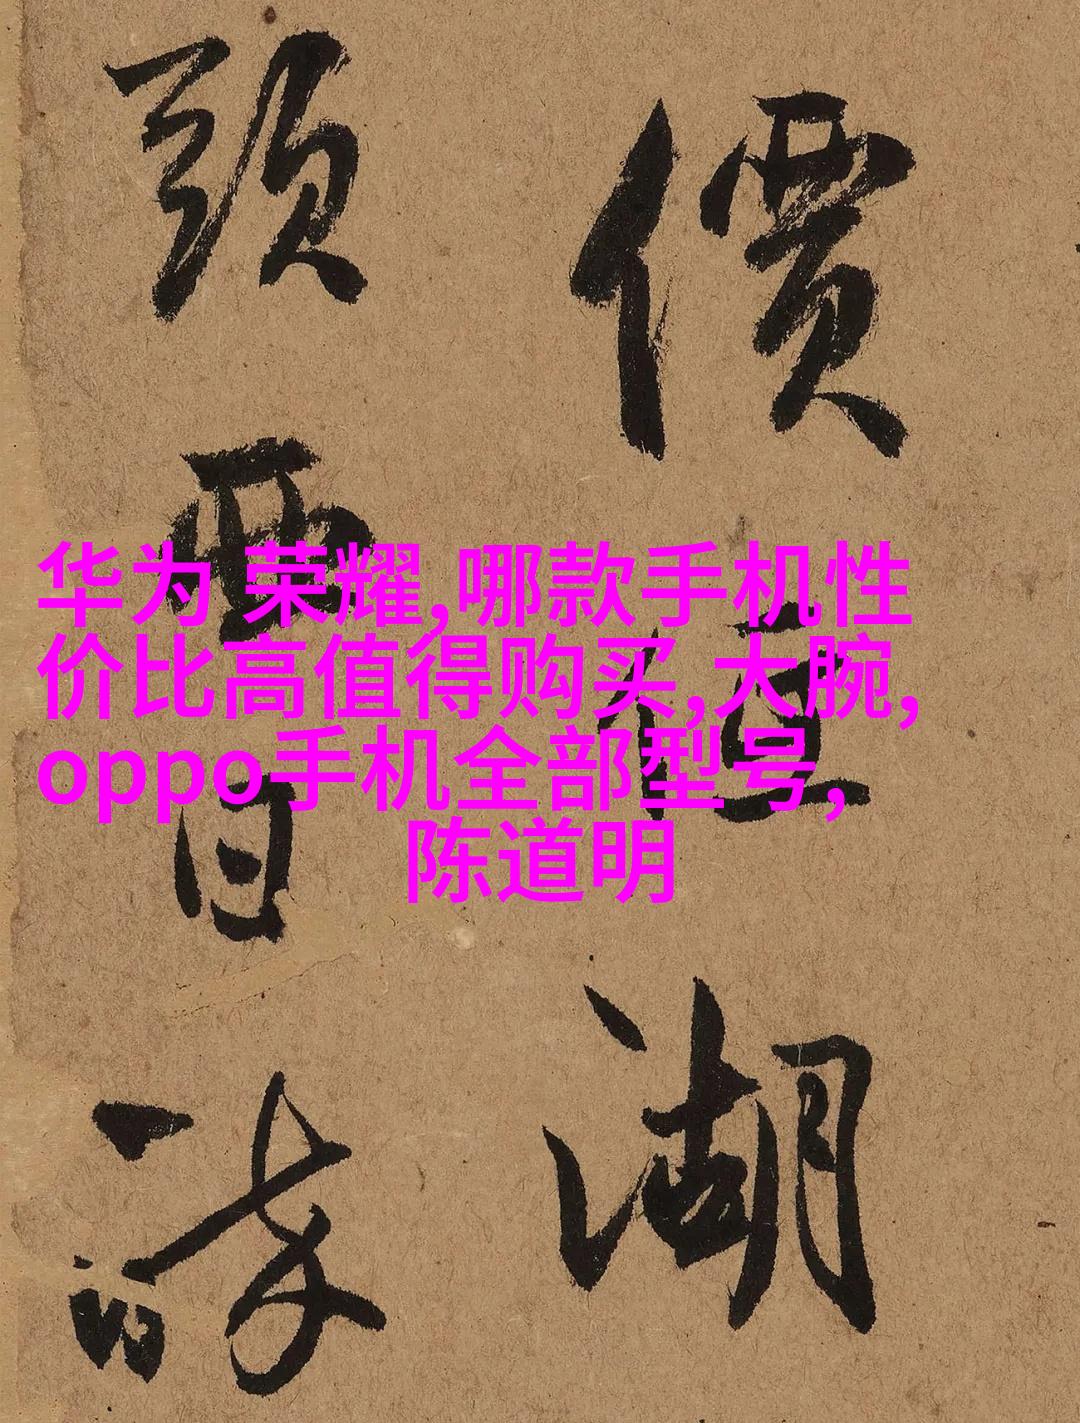 價湖
頭日
华为 荣耀,哪款手机性
价比高值得购买,大腕,
oppo手机全部型号,
陈道明